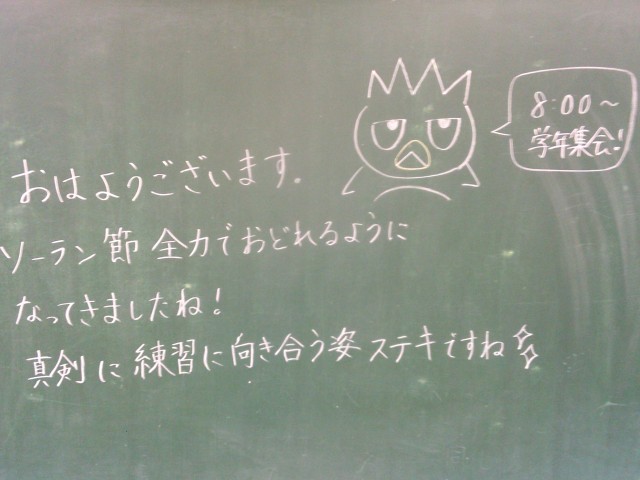 8:00〜
学年集会!
おはようございます。
ソーラン節 全力でおどれるように
なってきましたね!
真剣に練習に向き合う姿ステキですね